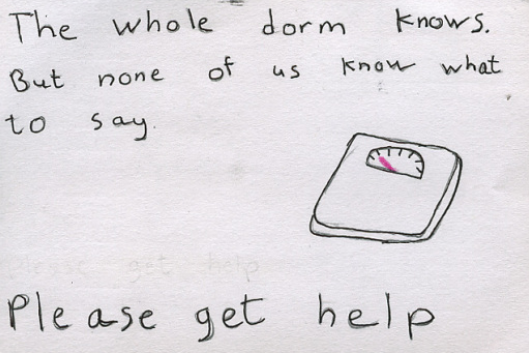 The whole dorm knows.
But none of us know what
to say.
please get help
Please get help